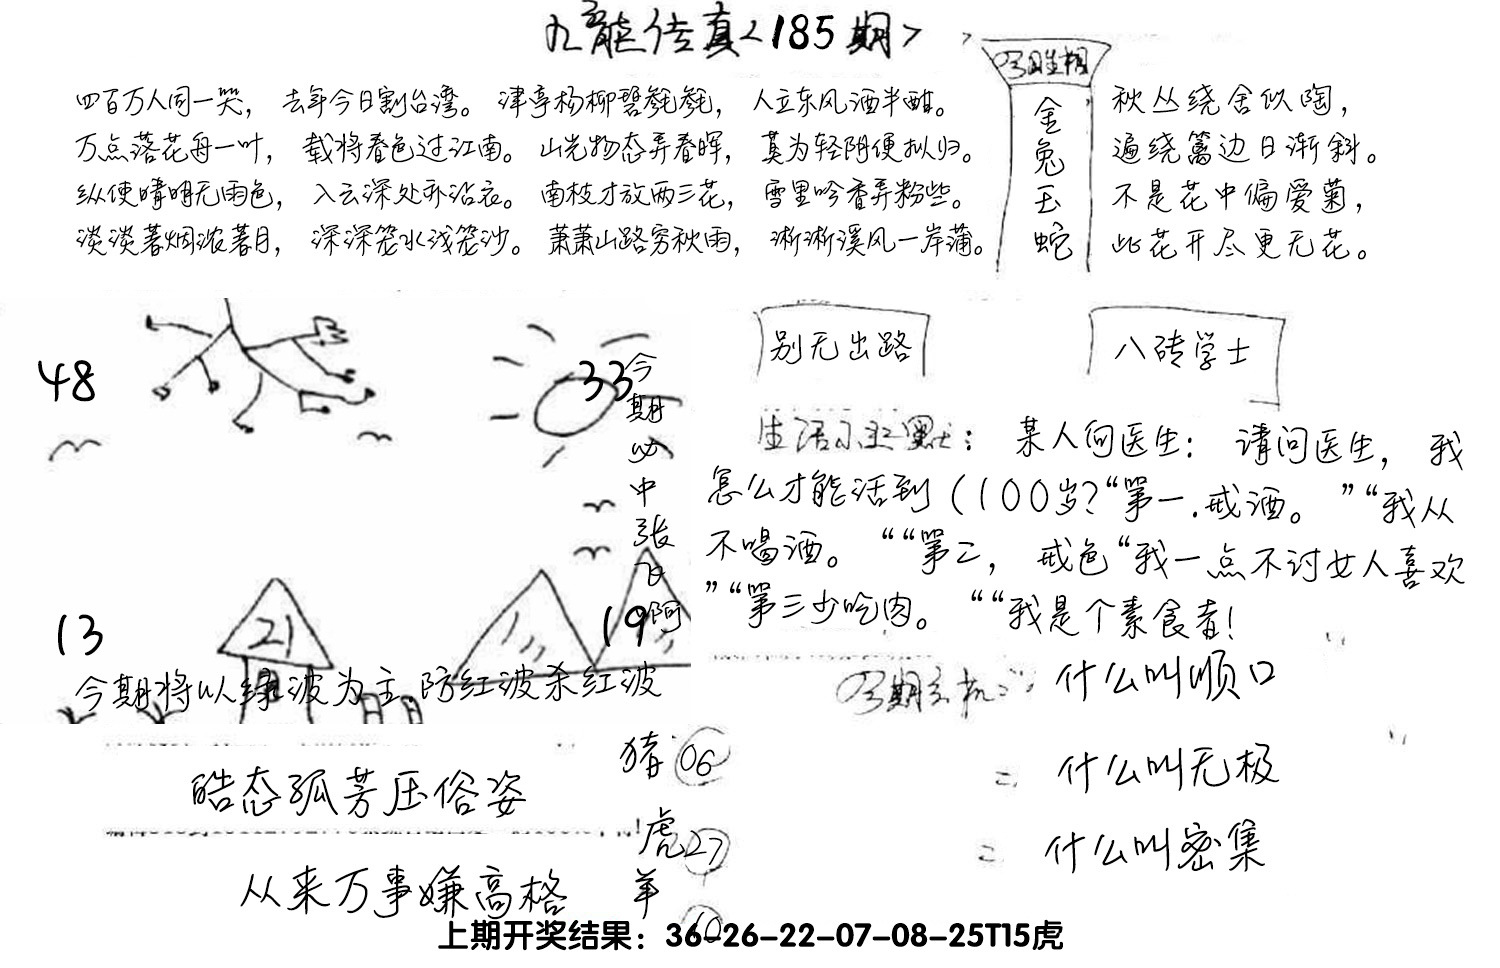 九龙传真<185期>
四百万人同一哭，去年今日割台湾。津亭杨柳碧毵毵，人立东风酒半酣。
万点落花舟一叶，载将春色过江南。山光物态弄春晖，莫为轻阴便拟归。
纵使晴明无雨色，入云深处亦沾衣。南枝才放两三花，雪里吟香弄粉些。
淡淡著烟浓著月，深深笼水浅笼沙。萧萧山路穷秋雨，淅淅溪风一岸蒲。
今期生相
金
兔
玉
蛇
秋丛绕舍似陶，
遍绕篱边日渐斜。
不是花中偏爱菊，
此花开尽更无花。
48
33
今
期
必
中
张
飞
啊
13
21
19
今期将以绿波为主.防红波杀红波
别无出路
八砖学士
生活小幽默：某人问医生：请问医生，我
怎么才能活到(100岁?“第一.戒酒。”“我从
不喝酒。““第二，戒色“我一点不讨女人喜欢
”“第三少吃肉。““我是个素食者!
今期玄机：什么叫顺口
= 什么叫无极
= 什么叫密集
皓态孤芳压俗姿
从来万事嫌高格
猪 06
虎 27
羊 10
上期开奖结果：36-26-22-07-08-25T15虎